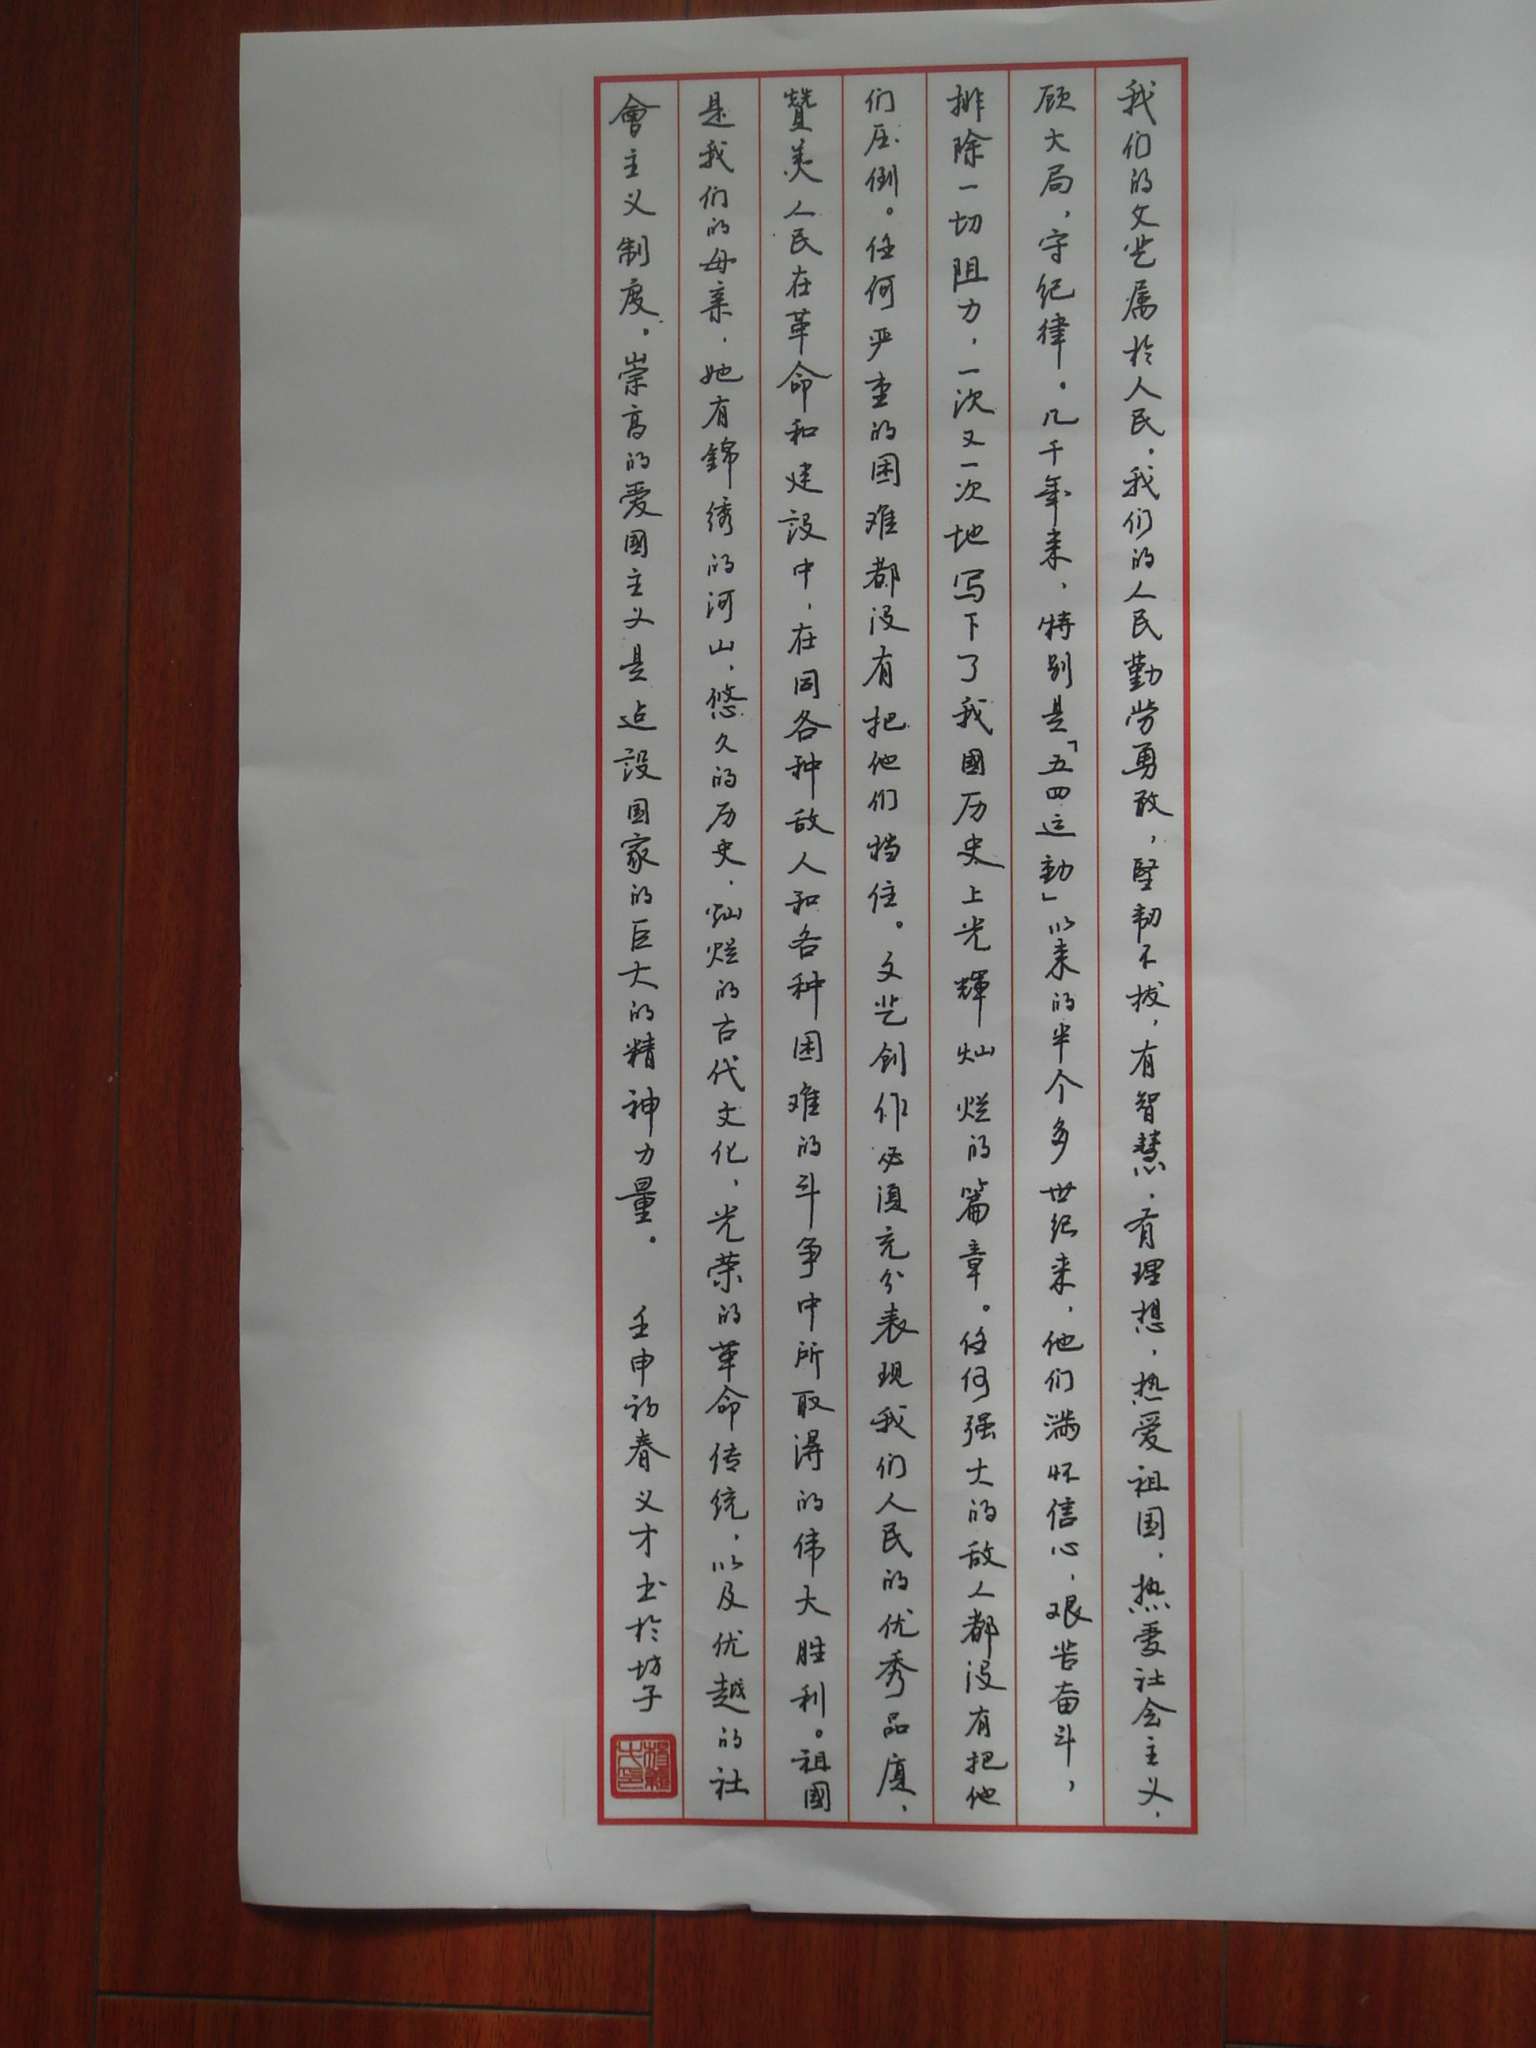 我们的文艺属於人民。我们的人民勤劳勇敢，坚韧不拔，有智慧，有理想，热爱祖国，热爱社会主义，
顾大局，守纪律。几千年来，特别是「五四运动」以来的半个多世纪来，他们满怀信心，艰苦奋斗，
排除一切阻力，一次又一次地写下了我國历史上光輝灿烂的篇章。任何强大的敌人都没有把他
们压倒。任何严重的困难都没有把他们挡住。文艺创作必须充分表现我们人民的优秀品质，
赞美人民在革命和建設中，在同各种敌人和各种困难的斗争中所取得的伟大胜利。祖國
是我们的母亲，她有錦绣的河山，悠久的历史，灿烂的古代文化，光荣的革命传统，以及优越的社
會主义制度。崇高的爱國主义是建設国家的巨大的精神力量。 壬申初春义才书於坊子